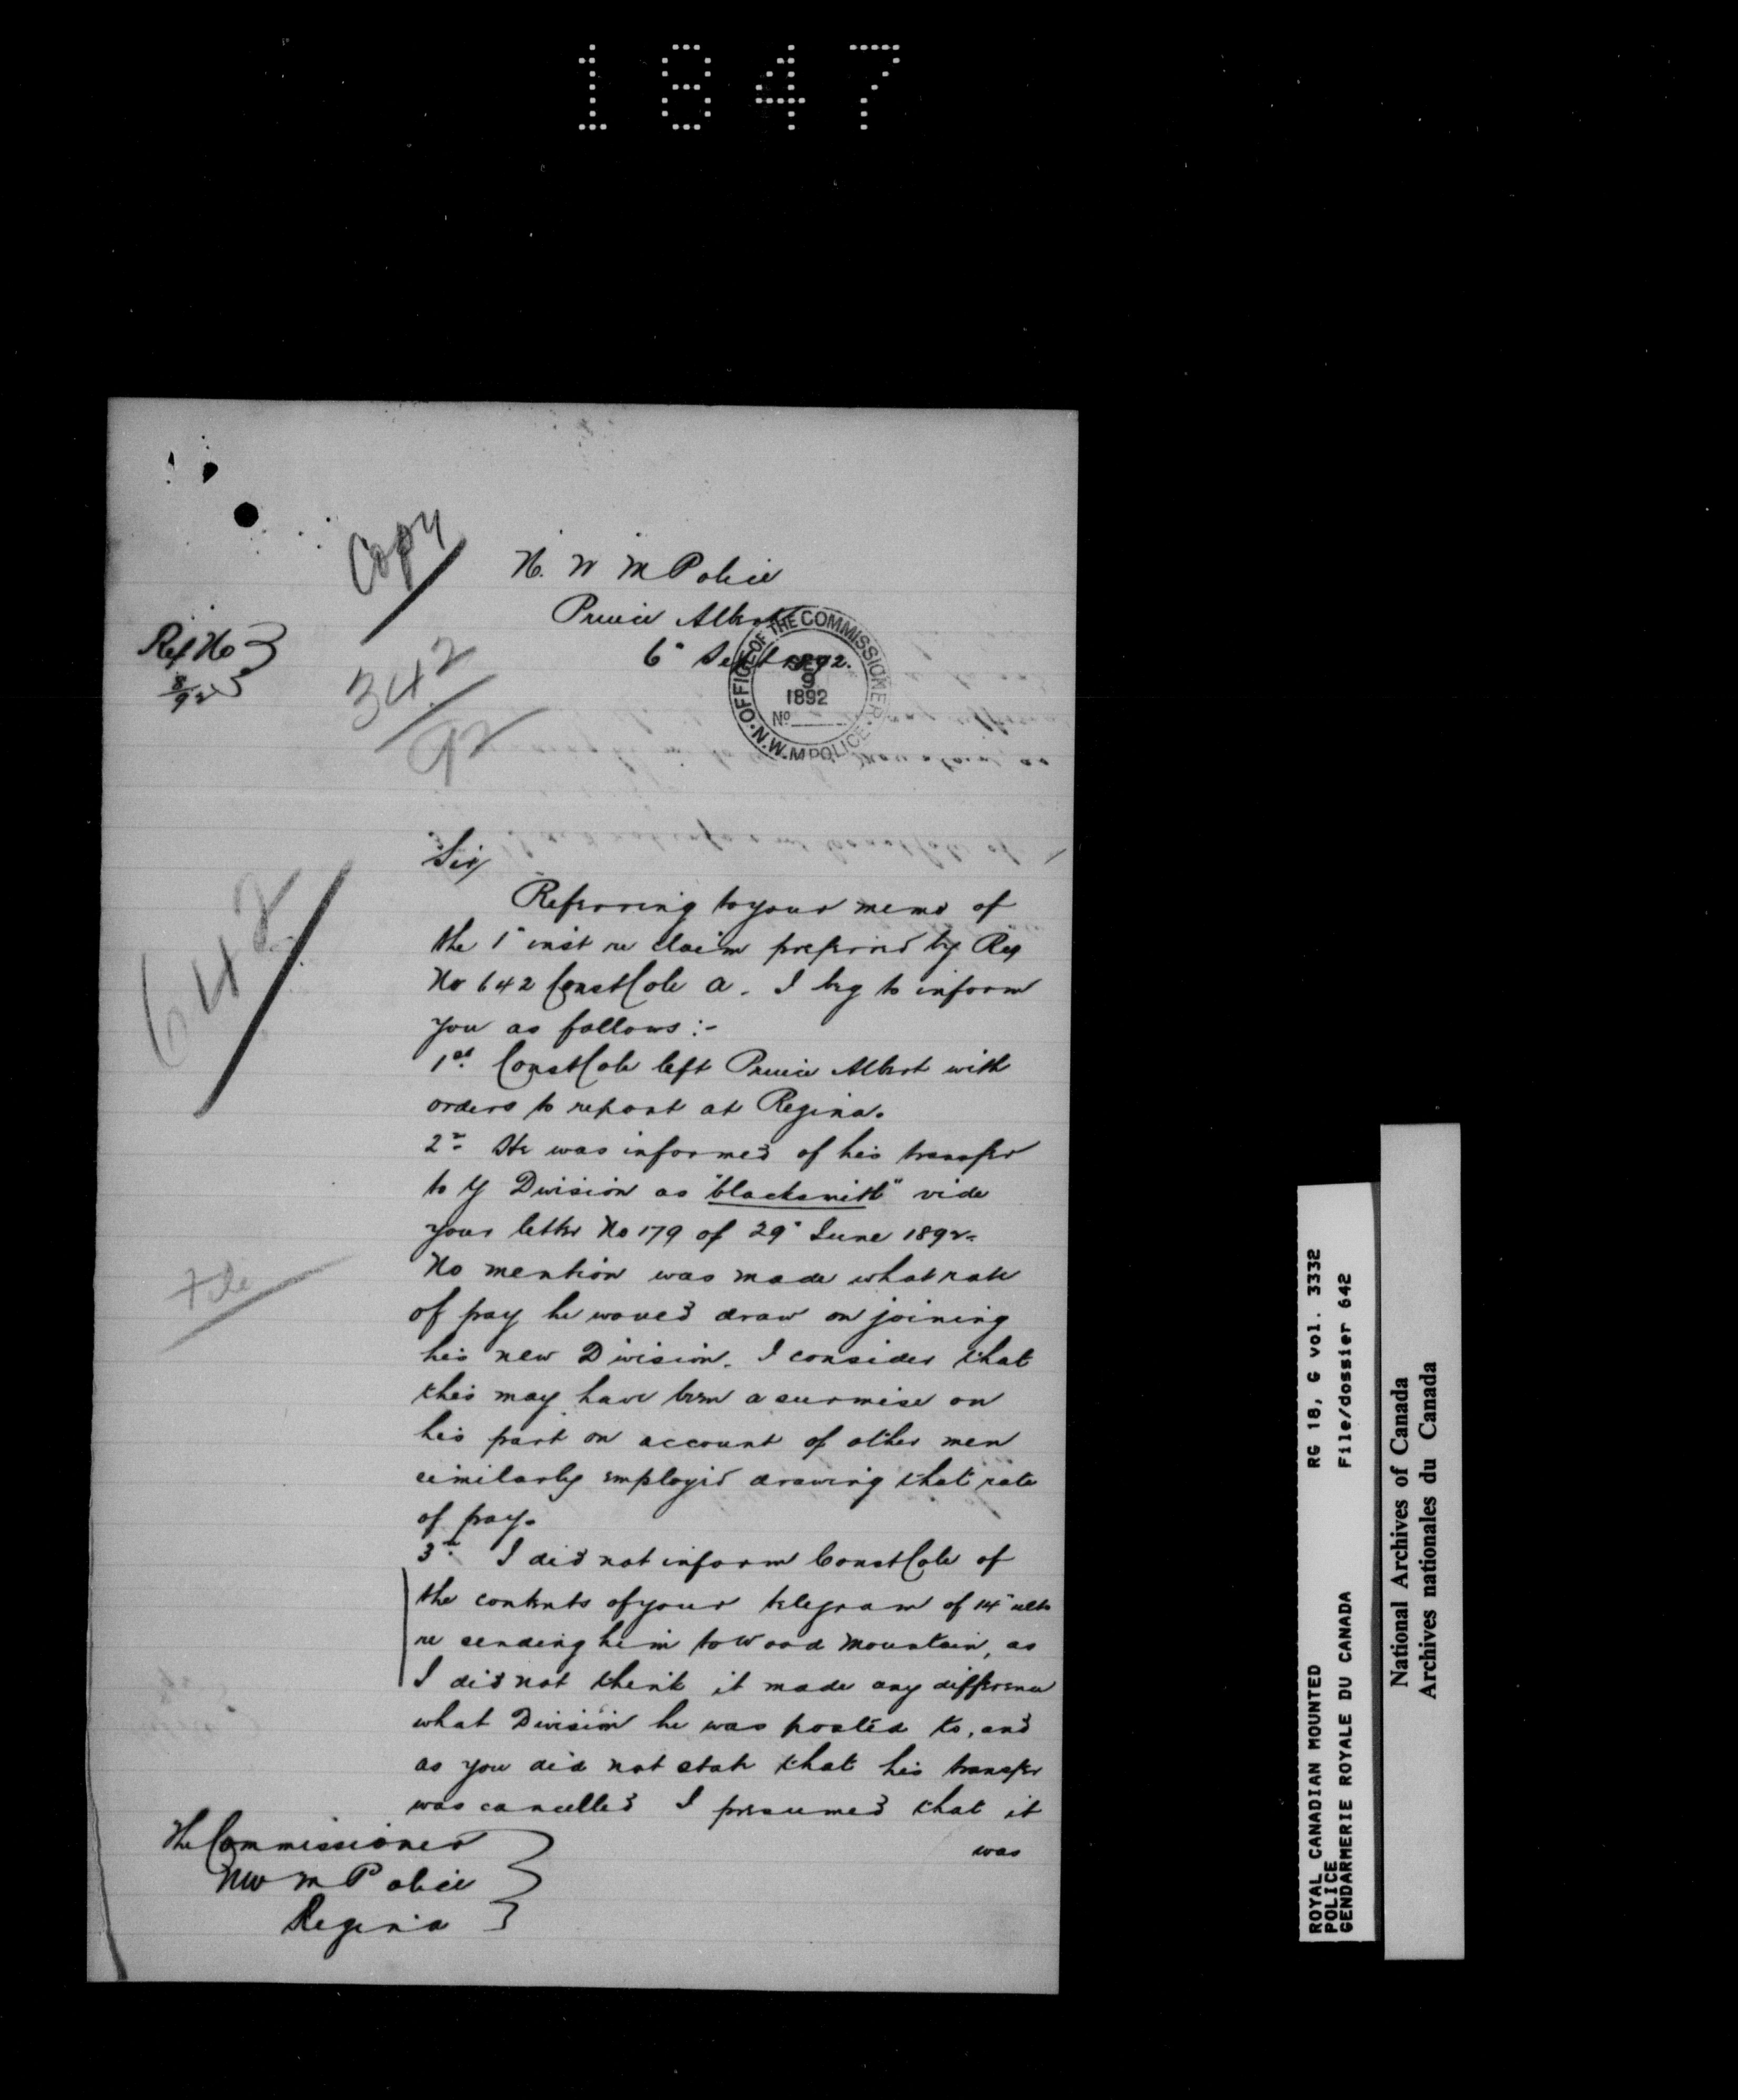 1847
Copy
N. W M Police
Prince Albert
6" Sept 1892.
Ref No
8/92
342/92
OFFICE OF THE COMMISSIONER
N.W.M POLICE
SEP
9
1892
No
Sir/
Referring to your memo of
the 1" inst re claim preferred by Reg
No 642 Const Cole A. I beg to inform
you as follows :-
642
1st Const Cole left Prince Albert with
orders to report at Regina.
2n He was informed of his transfer
to Y Division as "blacksmith" vide
your letter No 179 of 29" June 1892.
No mention was made what rate
of pay he would draw on joining
his new Division. I consider that
this may have been a surmise on
his part on account of other men
similarly employed drawing that rate
of pay.
3rd I did not inform Const Cole of
the contents of your telegram of 14" ulto
re sending him to Wood Mountain, as
I did not think it made any difference
what Division he was posted to, and
as you did not state that his transfer
was cancelled I presumed that it
was
The Commissioner
NW M Police
Regina
ROYAL CANADIAN MOUNTED RG 18, G vol. 3332
POLICE
GENDARMERIE ROYALE DU CANADA File/dossier 642
National Archives of Canada
Archives nationales du Canada